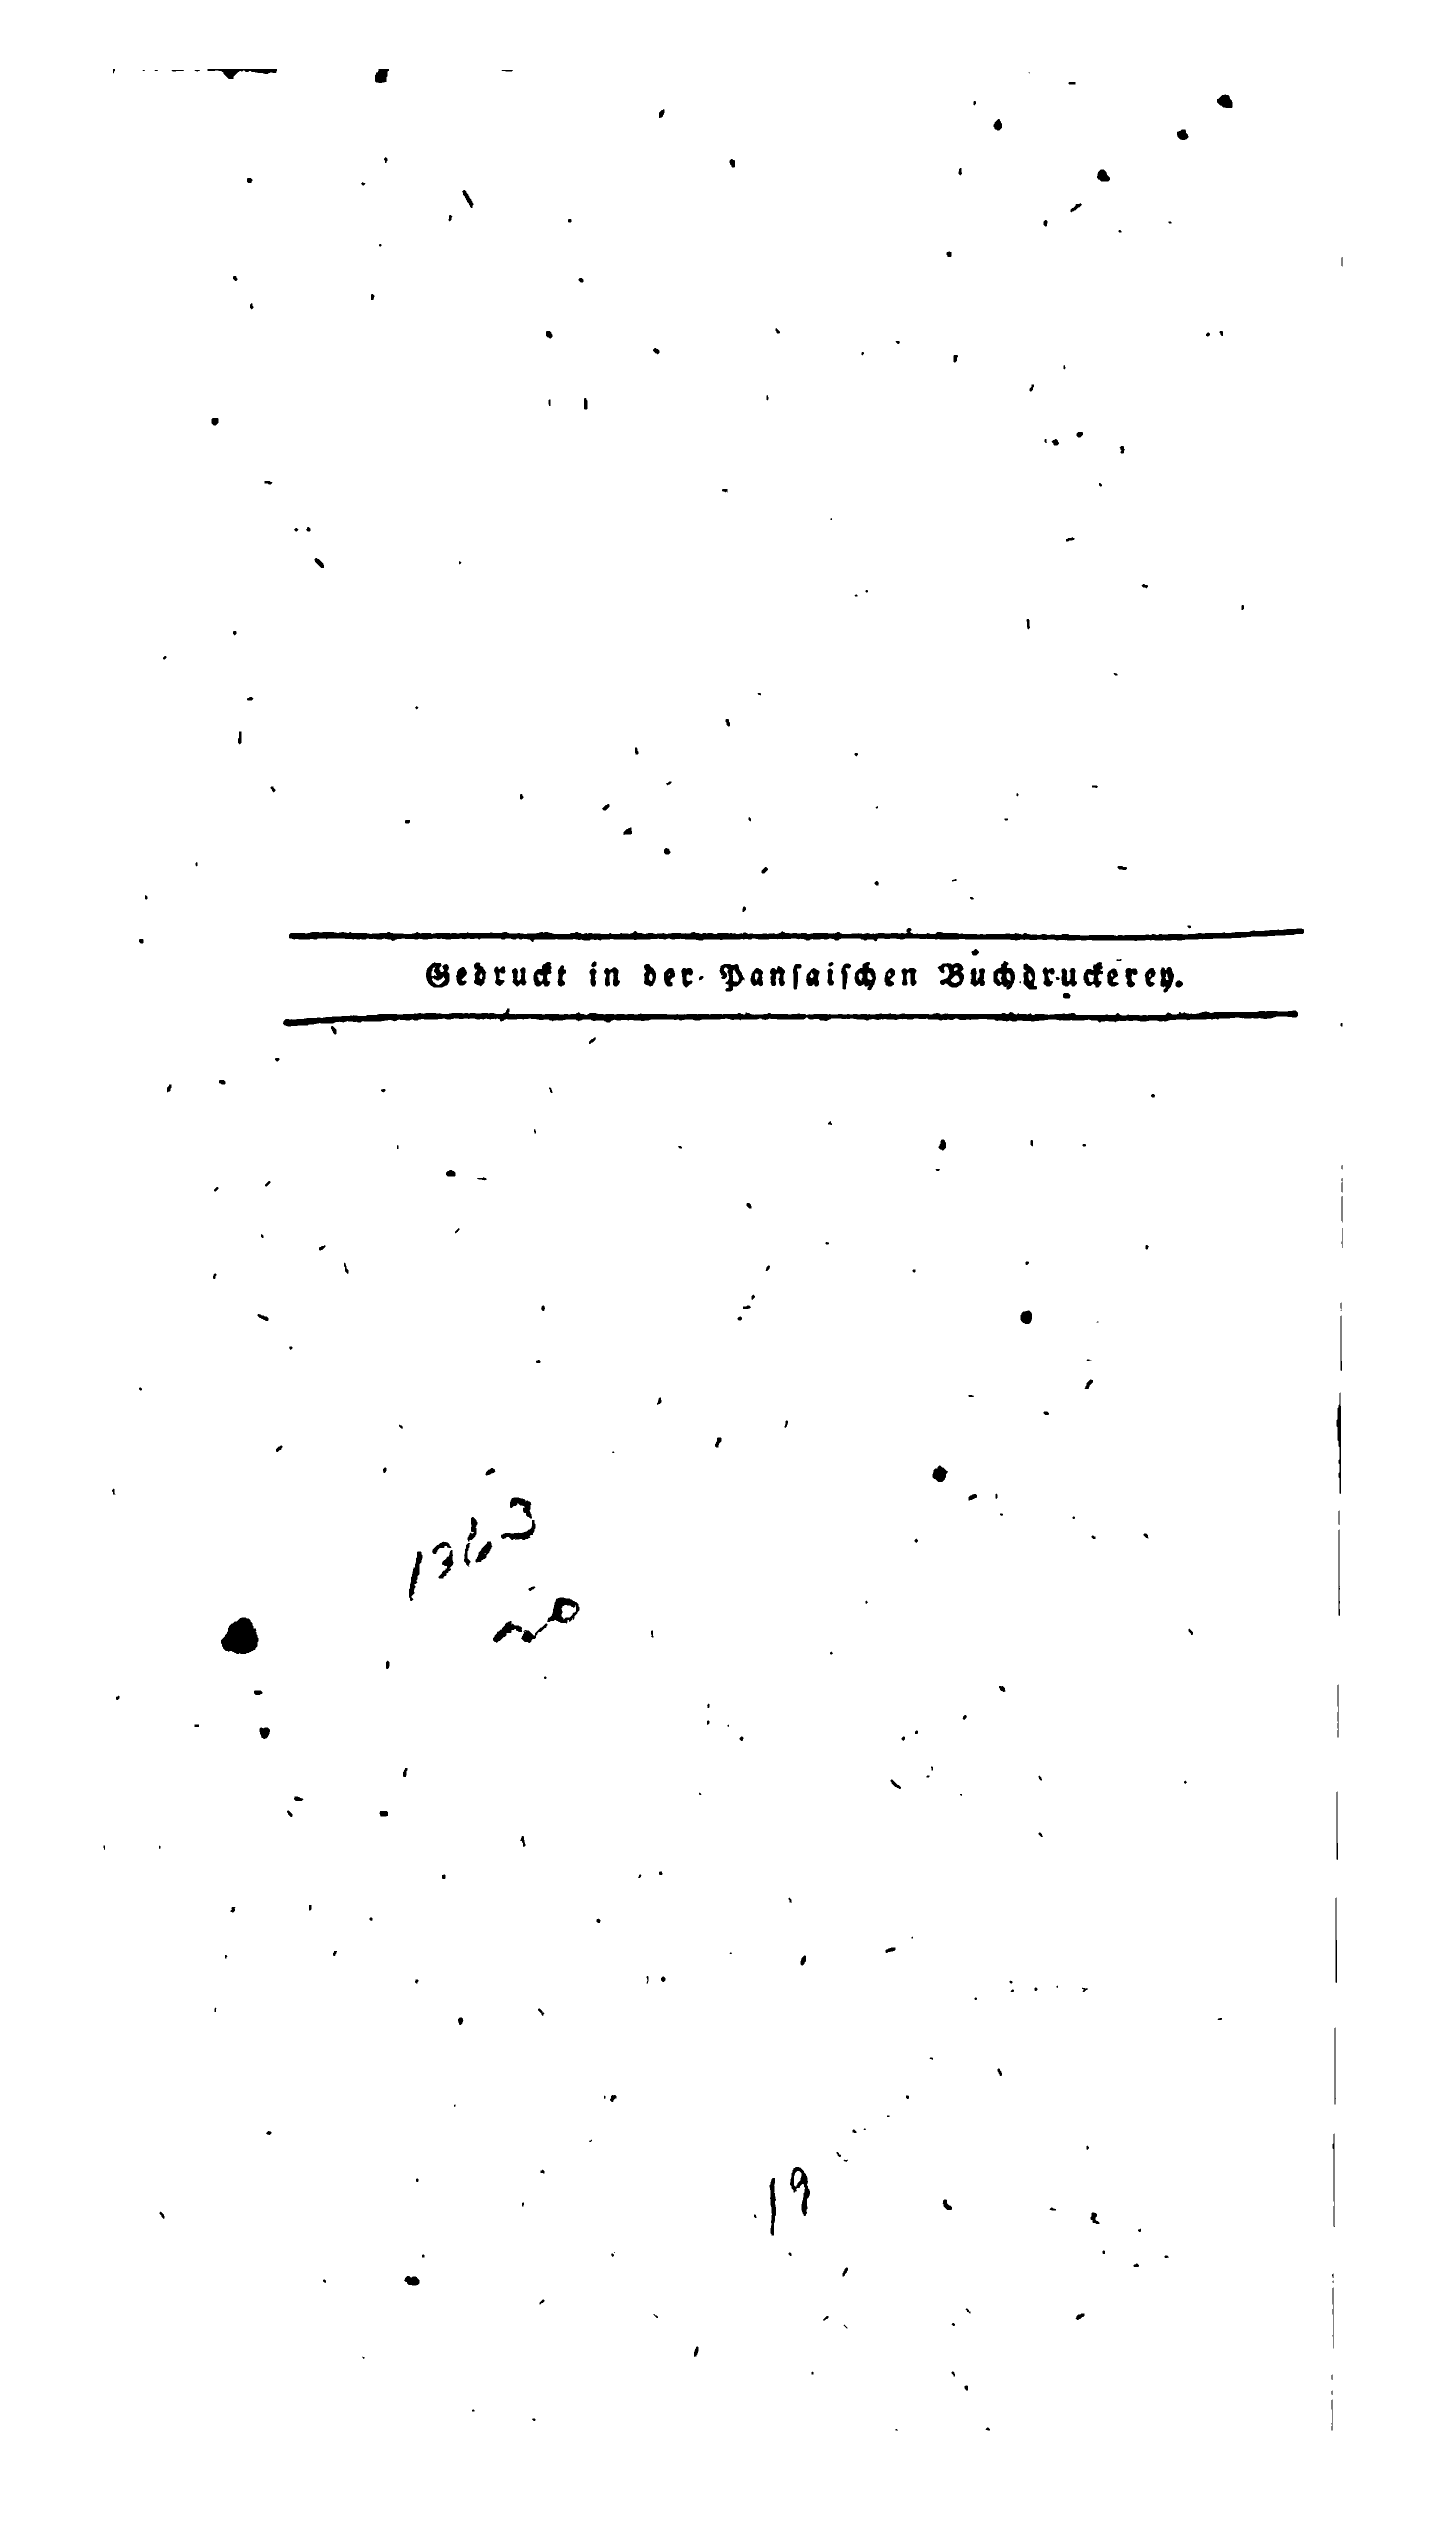 Gedruckt in der Pansaischen Buchdruckerey.
19